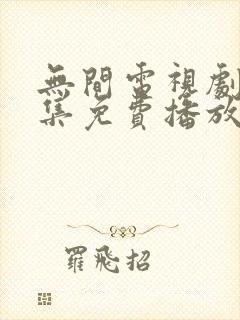 無間電視劇
集免費播放
羅飛招